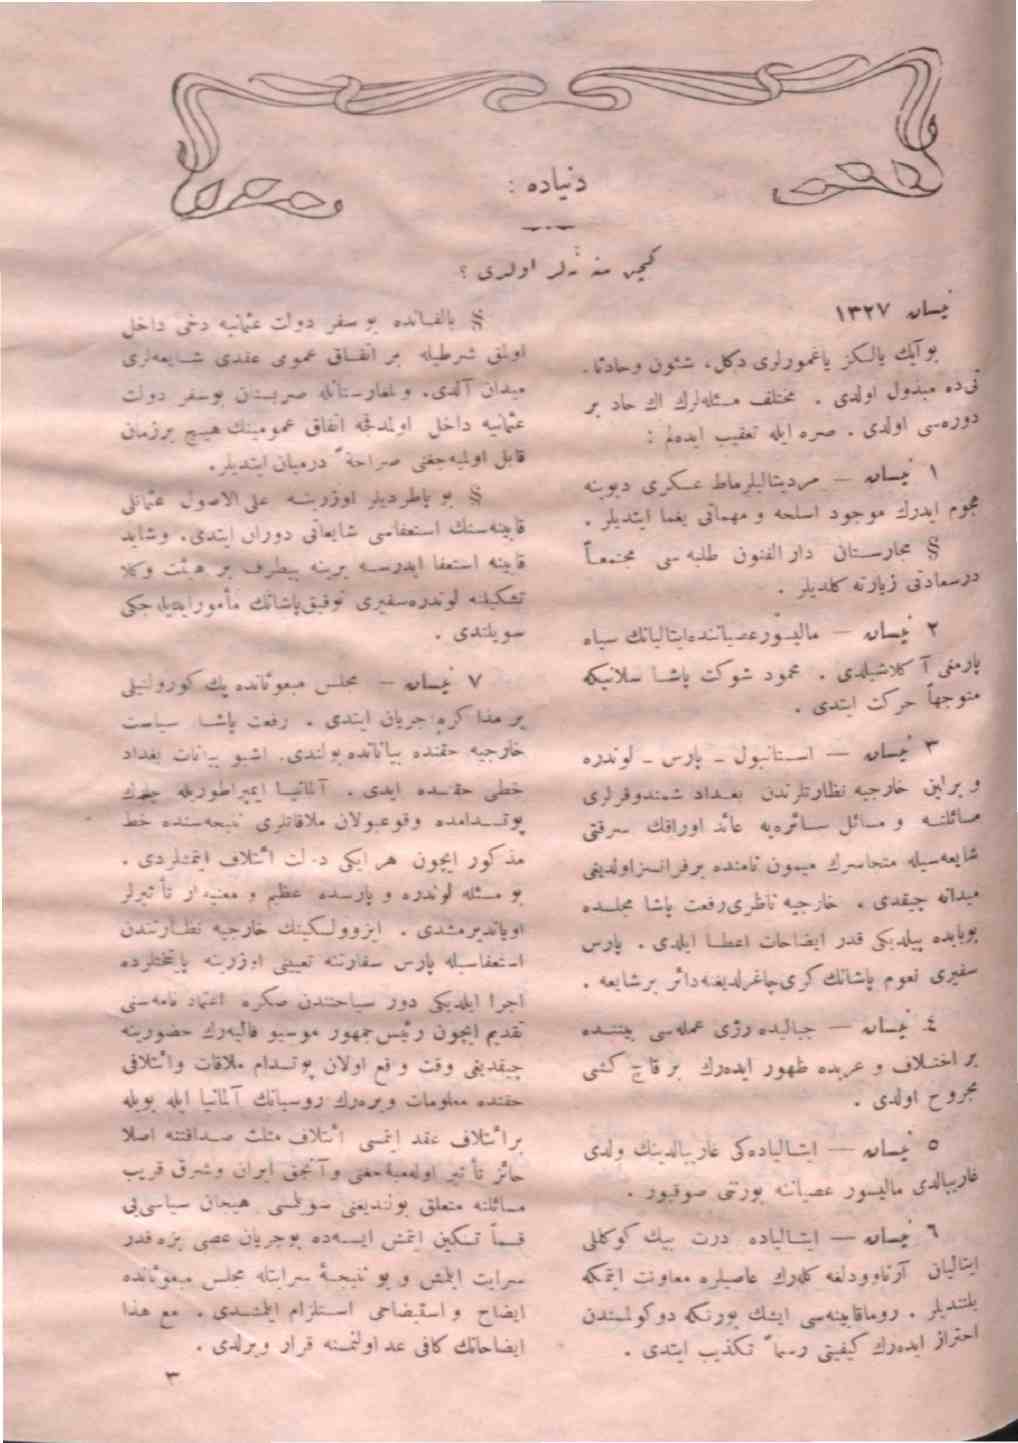 دنیاده :
کچن سنه نه‌لر اولدی ؟
نیسان ١٣٢٧
بو آیك یالکز یاغمورلری دکل، شئون و حادثا.
تی‌ده مبذول اولدی . مختلف مسئله‌لرك اك حاد بر
دوره‌سی اولدی . صره ایله تعقیب ایده‌لم :
١ نیسان — مردیتالیلرماط عسکری دپوینه
هجوم ایدرك موجود اسلحه و مهماتی یغما ایتدیلر .
§ مجارستان دار الفنون طلبه سی مجتمعاً
درسعادتی زیارته کلدیلر .
٢ نیسان — مالیسور عصیاننده ایتالیانك سیاه
پارمغی آ کلاشیلدی . محمود شوکت پاشا سلانیکه
متوجهاً حرکت ایتدی .
٣ نیسان — استانبول ـ پارس ـ لوندره
و برلین خارجیه نظارتلرندن بغداد شمندوفرلری
مسائلنه و مسائل سائره‌یه عائد اوراقك سرقتی
شایعه‌سیله متجاسرك میمون نامنده برفرانسز اولدیغی
میدانه چیقدی . خارجیه ناظری رفعت پاشا مجلسده
بوبابده بیلدیکی قدر ایضاحات اعطا ایلدی . پارس
سفیری نعوم پاشانك کری چاغرلدیغنه دائر بر شایعه .
٤ نیسان — جبالیده رژی عمله‌سی بیننده
بر اختلاف و عربده ظهور ایده‌رك بر قاچ کشی
مجروح اولدی .
٥ نیسان — ایتالیاده‌کی غاریبالدینك ولدی
غاریبالدی مالیسور عصیاننه بورنی صوقیور .
٦ نیسان — ایتالیاده درت بیك کوکللی
ایتالیان آرناوودلغه کله‌رك عاصیلره معاونت ایتمکه
یلتندیلر . روماقابینه‌سی ایشك بورنکه دوکولمسندن
احتراز ایده‌رك کیفیتی رسماً تکذیب ایتدی .
§ بالقانده بو سفر دولت عثمانیه دخی داخل
اولمق شرطیله بر اتفاق عمومی عقدی شایعه‌لری
میدان آلدی. و بلغارستانله صربستان بوسفر دولت
عثمانیه داخل اولمدقجه اتفاق عمومینك هیچ بر زمان
قابل اولمیه‌جغنی صراحةً درمیان ایتدیلر.
§ بو پاطردیلر اوزرینه علی الاصول عثمانلی
قابینه‌سنك استعفاسی شایعاتی دوران ایتدی. وشاید
قابینه استعفا ایدرسه یرینه بیطرف بر هیئت وکلا
تشکیلنه لوندره‌سفیری توفیق‌پاشانك مأمور ایدیله‌جکی
سویلندی .
٧ نیسان — مجلس مبعوثانده پك کورولتیلی
بر مذا کره جریان ایتدی . رفعت پاشا سیاست
خارجیه حقنده بیاناتده بولندی. اشبو بیانات بغداد
خطی حقنده ایدی . آلمانیا ایمپراطوریله چارك
پوتسدامده وقوعبولان ملاقاتلری نتیجه‌سنده خط
مذکور ایچون هر ایکی دولت ائتلاف ایتمشلردی .
بو مسئله لوندره و پارسده عظیم و معنیدار تأثیرلر
اویاندیرمشدی . ایزوولسکینك خارجیه نظارتندن
استعفاسیله پارس سفارتنه تعیینی اوزرینه پایتختلرده
اجرا ایلدیکی دور سیاحتندن صکره اعتماد نامه‌سنی
تقدیم ایچون رئیس جمهور موسیو فالیه‌رك حضورینه
چیقدیغی وقت وقوع اولان پوتسدام ملاقات وائتلافی
حقنده معلومات ویره‌رك روسیانك آلمانیا ایله بویله
برائتلاف عقد ایتمسی ائتلاف مثلث صداقتنه اصلا
حائز تأثیر اولمیه‌جغنی و آنجق ایران و شرق قریب
مسائلنه متعلق بولندیغنی سویلمسی هیجان سیاسی‌یی
قسماً تسکین ایتمش ایسه‌ده بو جریان عصبی بزه قدر
سرایت ایلمش و بو نتیجۀ سرایتله مجلس مبعوثانده
ایضاح و استیضاحی استلزام ایلمشدی . مع هذا
ایضاحاتك کافی عد اولنمسنه قرار ویرلدی .
٣